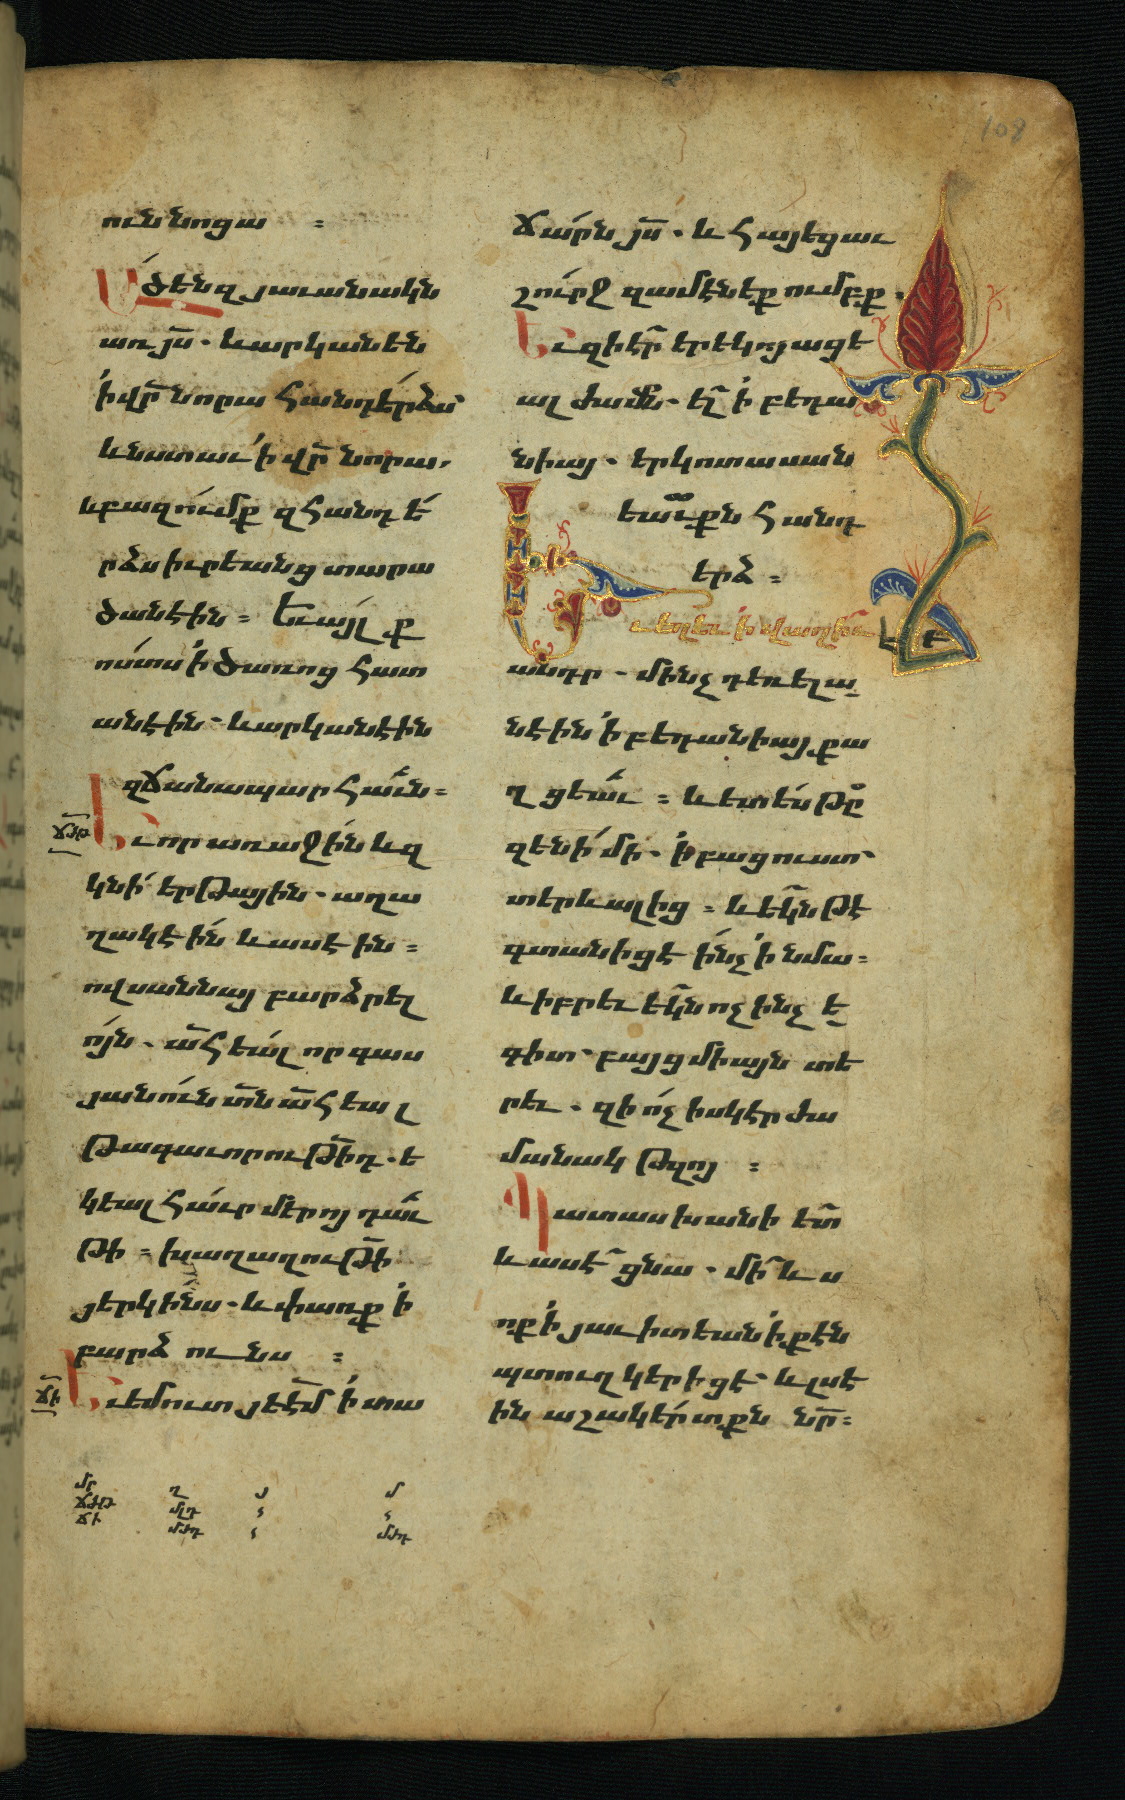 108
ուն նոցա ։
Ածեն զյաւանակն
առ յս̄ . և արկանեն
ի վր̄ նորա հանդերձս
և նստաւ ի վր̄ նորա .
և բազումք զհանդե
րձս իւրեանց տարա
ծանէին ։ Եւ այլք
ոստս ի ծառոց հատ
անէին . և արկանէին
զճանապարհա̄ւն ։
ՃԺԹ
Եւ որ առաջին և զ
կնի երթային . աղա
ղակէին և ասէին ։
ովսաննայ բարձրել
ոյն . ա̄հեալ որ գաս
յանուն տն̄ ա̄հեալ
թագաւորութի̄դ . ե
կեալ հաւր մերոյ դա̄ւ
թի ։ խաղաղութի̄
յերկինս . և փառք ի
բարձունս ։
ՃԻ
Եւ եմուտ յեէ̄մ ի տա
ճարն յս̄ . և հայեցաւ
շուրջ զամէնեքումբք .
Եւ զի էր̄ երեկոյացե
ալ ժամն . ել̄ ի բեթա
նիայ . երկոտասան
եաւքն հանդ
երձ ։
Եւ եղեւ ի վաղիւ
անդր . մինչ դեռ ելա
նէին ի բեթանիայ քա
ղցեաւ ։ և ետես թզ
զենի մի . ի բացուստ
տերևալից ։ և եկն̄ թէ
գտանիցէ ինչ ի նմա ։
և իբրեւ եկն̄ ոչ ինչ ե
գիտ . բայց միայն տե
րեւ . զի ոչ իսկ էր ժա
մանակ թզոյ ։
Պատասխանի ետ̄
և ասէ ցնա . մի̄ ևս
ոք ի յաւիտեան ի քէն
պտուղ կերիցէ . և լսէ
ին աշակերտքն նր̄ ։
ՃԺԹ
ՃԻ